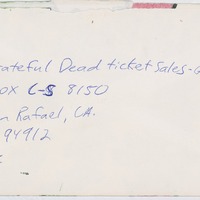 rateful Dead ticket sales-
ox C-S 8150
n Rafael, CA.
94912